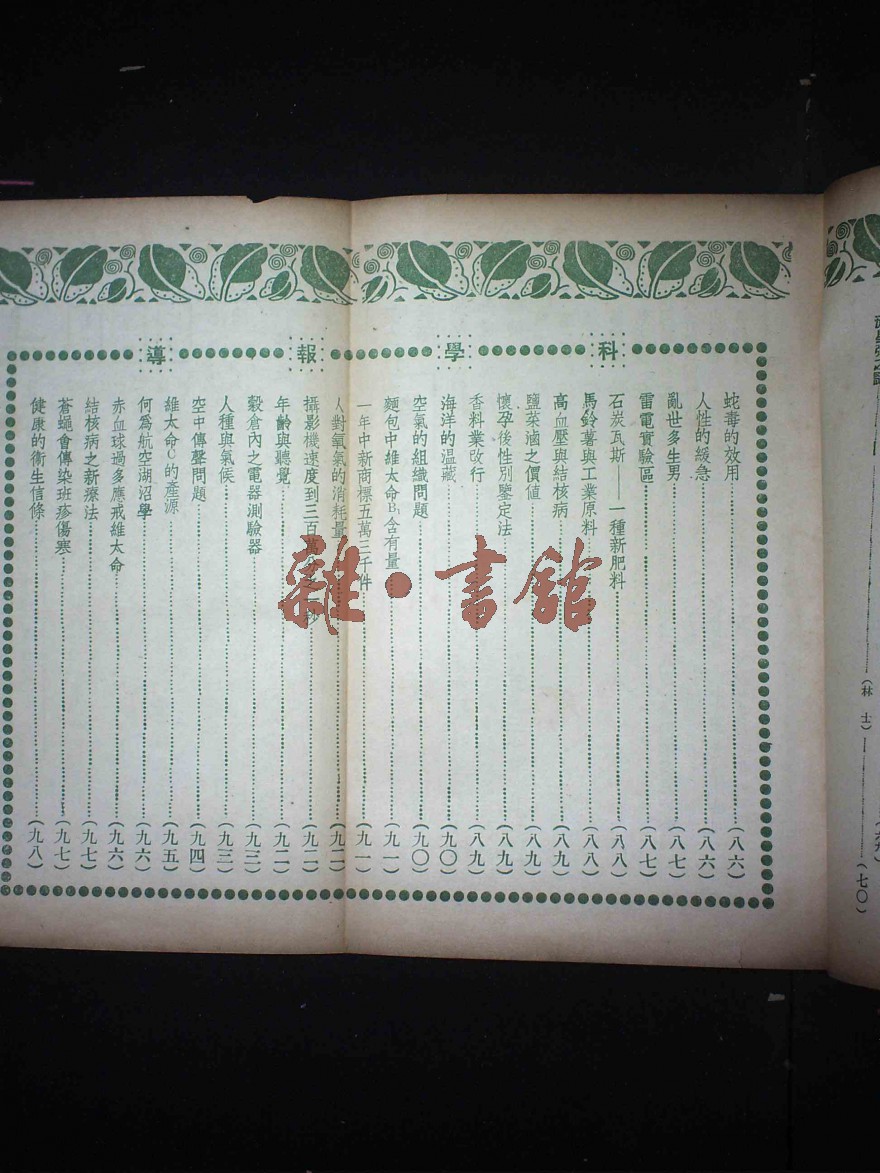 科學報導
蛇毒的效用……（八六）
人性的緩急……（八六）
亂世多生男……（八七）
雷電實驗區……（八七）
石炭瓦斯——一種新肥料……（八八）
馬鈴薯與工業原料……（八八）
高血壓與結核病……（八九）
鹽菜滷之價値……（八九）
懷孕後性別鑒定法……（八九）
香料業改行……（八九）
海洋的温藏……（九〇）
空氣的組織問題……（九〇）
麵包中維太命B₁含有量……（九一）
一年中新商標五萬三千件……（九一）
人對氧氣的消耗量……（九二）
攝影機速度到三百萬分之一秒……（九二）
年齡與聽覺……（九二）
穀倉內之電器測驗器……（九三）
人種與氣候……（九三）
空中傳聲問題……（九四）
維太命C的產源……（九五）
何爲航空湖沼學……（九六）
赤血球過多應戒維太命……（九六）
結核病之新療法……（九七）
蒼蠅會傳染斑疹傷寒……（九七）
健康的衞生信條……（九八）
（林士）——（七〇）
雜·書館